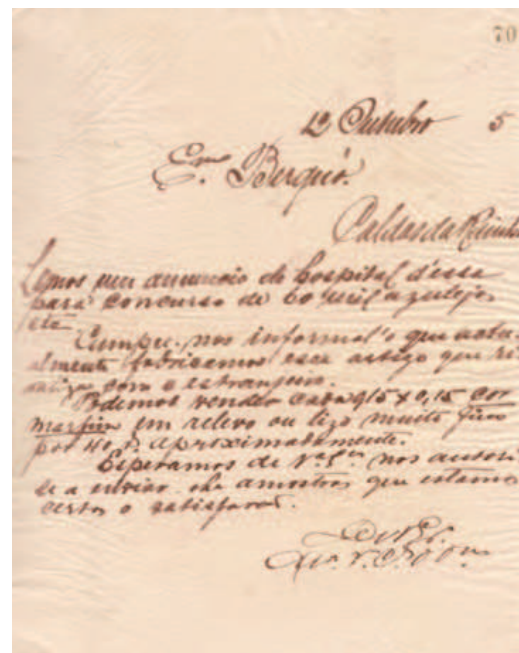 70
12 Outubro 5
Exmo Berquó.
Caldas da Rainha
Lemos um annuncio do hospital d'essa
para concurso de 60 mil azulejos,
etc
Cumpre-nos informal'o que actu-
almente fabricamos esse artigo que ri-
valiza com o estrangeiro.
Podemos vender cada 0,15 x 0,15 cor
marfim em relevo ou lizo muito fino
por 40 aproximadamente.
Esperamos de V. nos autori-
se a enviar-lhe amostras que estamos
certos o satisfará.